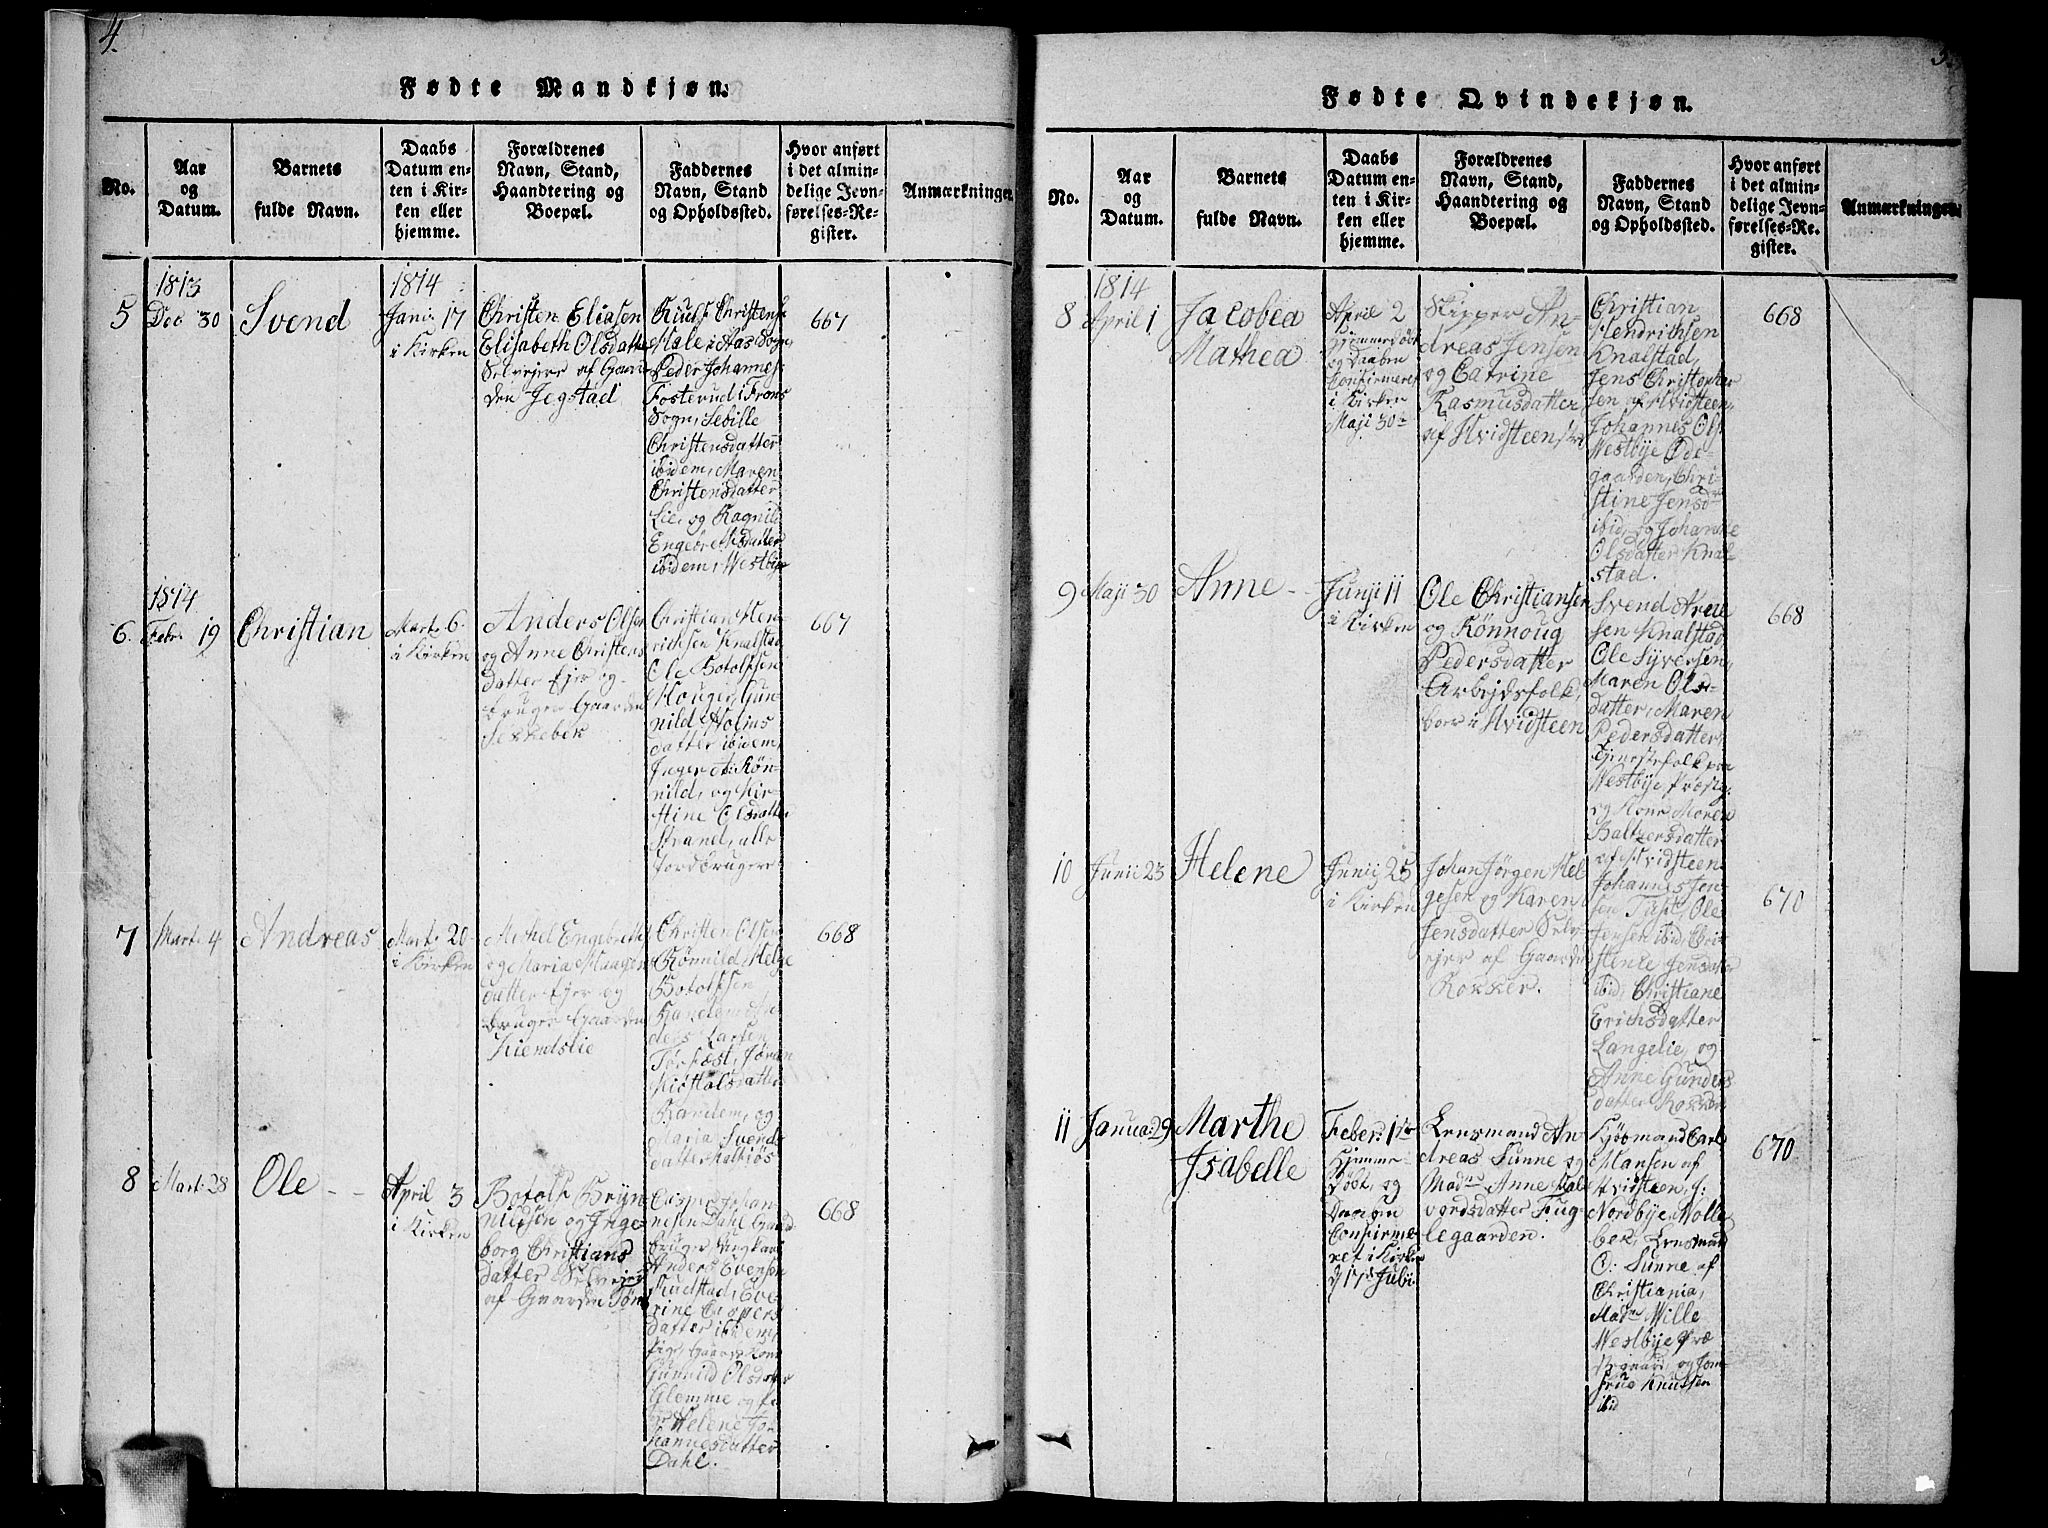 4.
Fødte Mandkjøn.
No.
Aar
og
Datum.
Barnets
fulde Navn.
Daabs
Datum en-
ten i Kir-
ken eller
hjemme.
Forældrenes
Navn, Stand,
Haandtering og
Boepæl.
Faddernes
Navn, Stand
og Opholdssted.
Hvor anført
i det almin-
delige Jevn-
førelses-Re-
gister.
Anmærkninger
5
1813
Dec 30
Svend
1814
Jani: 17
i Kirken
Christen Eliasen
Elisabeth Olsdatter
Selvejere af Gaar
den Jegstad
Christens
Male i Aas Sogn,
Peder Johannes
Fosterud i Frons
Sogn, Sebille
Christensdatter
ibidem, Maren
Christensdatter
Lie, og Ragnild
Engebretsdatter
ibidem, Westbye
667
6.
1814
Febr: 19
Christian
Mart: 6.
i Kirken
Anders Olsen
og Anne Christens
datter Ejer og
bruger Gaarden
Sekkebek
Christian Hen
richsen Knalstad
Ole Botolfsen
Houger, Gun
nild
datter ibidem,
Inger A: Røn-
nild, og Kir-
stine Olsdatter
Strand, alle
Jordbrugere
667
7
Mart: 4
Andreas
Mart: 20
i Kirken
Michel Engebrets
og Maria Haagens
datter Ejer og
bruger Gaarden
Kiendslie
Christen Olsen
Rønnild, Helge
Botolfsen
Kandem, An
ders Larsen
Torfæst, Jøran
Kiøstolsdatter
Kandem, og
Maria Svends
datter
668
8
Mart: 28
Ole
April 3
i Kirken
Botolf Bryn
nildsen og Inge-
borg Christians
datter Selvejere
af Gaarden
Casper Johan
nesen Dahl Gaard
bruger
Anders Evensen
Rudstad, Eve
rine Caspers
datter ibidem
Pige, Gaardk Kone
Gunnild Olsdatter
Glemme og Pi
ge Helene Jo
hannesdatter
Dahl.
668
Fødte Qvindekjøn.
No.
Aar
og
Datum.
Barnets
fulde Navn.
Daabs
Datum en-
ten i Kir-
ken eller
hjemme.
Forældrenes
Navn, Stand,
Haandtering og
Boepæl.
Faddernes
Navn, Stand
og Opholdssted.
Hvor anført
i det almin-
delige Jevn-
førelses-Re-
gister.
Anmærkninger.
8
1814
April 1
Jacobea
Mathea
April 2
Hjemmedøbt
og Daaben
Konfirmeret
i Kirken
Maji 30
Skipper An-
dreas Jensen
og Catrine
Rasmusdatter
af Hvidsteen
Christian
Hendrichsen
Knalstad,
Jens Christopher
sen af Hvidsteen,
Johannes Ols
Westbye Øde-
gaarden, Chri-
stine Jensd
ibid, og Johanne
Olsdatter Knal
stad.
668
9
Maji 30
Anne
Junji 11
i Kirken
Ole Christiansen
og Rønnoug
Pedersdatter
Arbejdsfolk,
boer i Hvidsteen
Svend Aren
sen Knalstad
Ole Syversen,
Maren Ols-
datter, Maren
Pedersdatter,
Tjenestefolk paa
Westbye Præsteg:
og Kone Maren
Baltzersdatter
af Hvidsteen
668
10
Junii 23
Helene
Junij 25
i Kirken
Johan Jørgen Hel
gesen og Karen
Jensdatter Selv
ejer af Gaarden
Rokker.
Johannes Jen
sen Tuft, Ole
Jensen ibid, Chri-
stense Jensdatter
ibid, Christiane
Erichsdatter
Langelie, og
Anne Gunders
datter Rokker
670
11
Janua: 29
Marthe
Isabelle
Feber: 1
Hjemme-
døbt, og
Daaben
Confirme-
ret i Kirken
d 17 Julii
Lensmand An
dreas Sunne og
Mad Anne Hal
vordsdatter Fug
legaarden.
Kjøbmand Carl
Hansen af
Hvidsteen, J:
Nordbye, Wolle
bek, Lensmand
O: Sunne af
Christiania,
Mad Wille
Westbye Præ
stegaard, og Jom
frue Knutsen
ibid
670